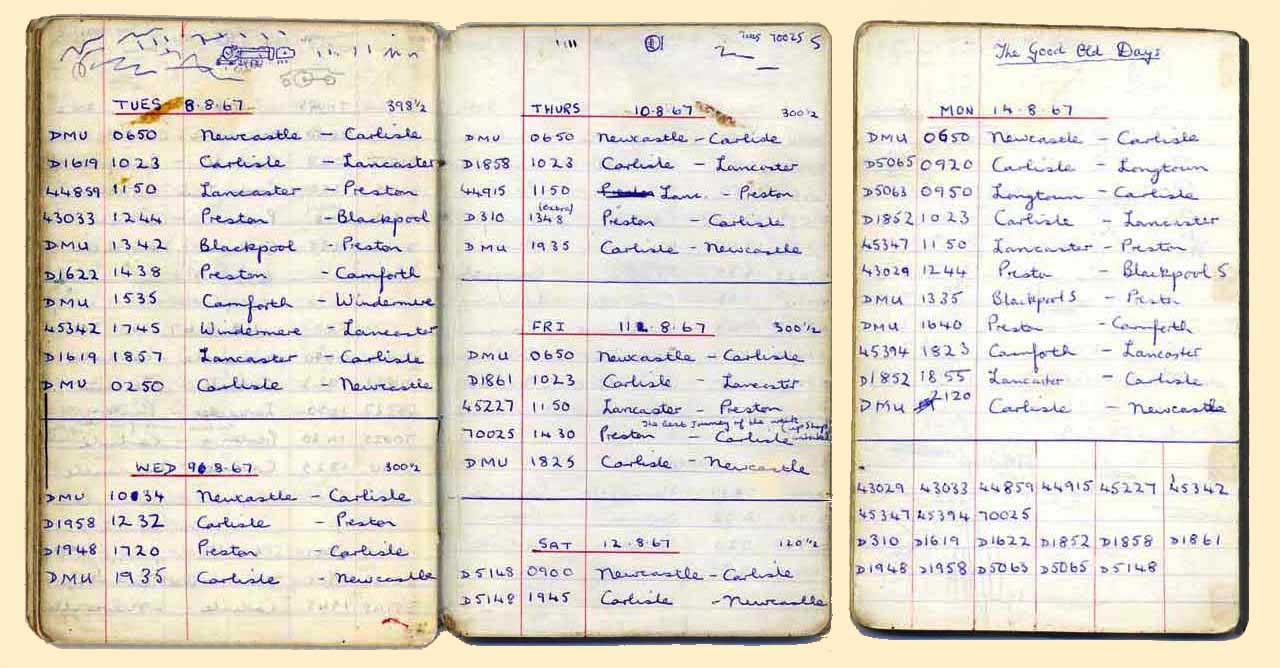 TUES 8.8.67 398½
DMU 0650 Newcastle - Carlisle
D1619 1023 Carlisle - Lancaster
44859 1150 Lancaster - Preston
43033 1244 Preston - Blackpool
DMU 1342 Blackpool - Preston
D1622 1438 Preston - Carnforth
DMU 1535 Carnforth - Windermere
45342 1745 Windermere - Lancaster
D1619 1857 Lancaster - Carlisle
DMU 0250 Carlisle - Newcastle
WED 9.8.67 300½
DMU 1034 Newcastle - Carlisle
D1958 1232 Carlisle - Preston
D1948 1720 Preston - Carlisle
DMU 1935 Carlisle - Newcastle
70025 S
THURS 10.8.67 300½
DMU 0650 Newcastle - Carlisle
D1858 1023 Carlisle - Lancaster
44915 1150 Lanc. - Preston
(extra)
D310 1348 Preston - Carlisle
DMU 1935 Carlisle - Newcastle
FRI 11.8.67 300½
DMU 0650 Newcastle - Carlisle
D1861 1023 Carlisle - Lancaster
45227 1150 Lancaster - Preston
The best Journey of the week
70025 1430 Preston - Carlisle
DMU 1825 Carlisle - Newcastle
SAT 12.8.67 120½
D5148 0900 Newcastle - Carlisle
D5148 1945 Carlisle - Newcastle
The Good Old Days
MON 14.8.67
DMU 0650 Newcastle - Carlisle
D5065 0920 Carlisle - Longtown
D5063 0950 Longtown - Carlisle
D1852 1023 Carlisle - Lancaster
45347 1150 Lancaster - Preston
43029 1244 Preston - Blackpool S
DMU 1335 Blackpool S - Preston
DMU 1640 Preston - Carnforth
45394 1823 Carnforth - Lancaster
D1852 1855 Lancaster - Carlisle
DMU 2120 Carlisle - Newcastle
43029 43033 44859 44915 45227 45342
45347 45394 70025
D310 D1619 D1622 D1852 D1858 D1861
D1948 D1958 D5063 D5065 D5148